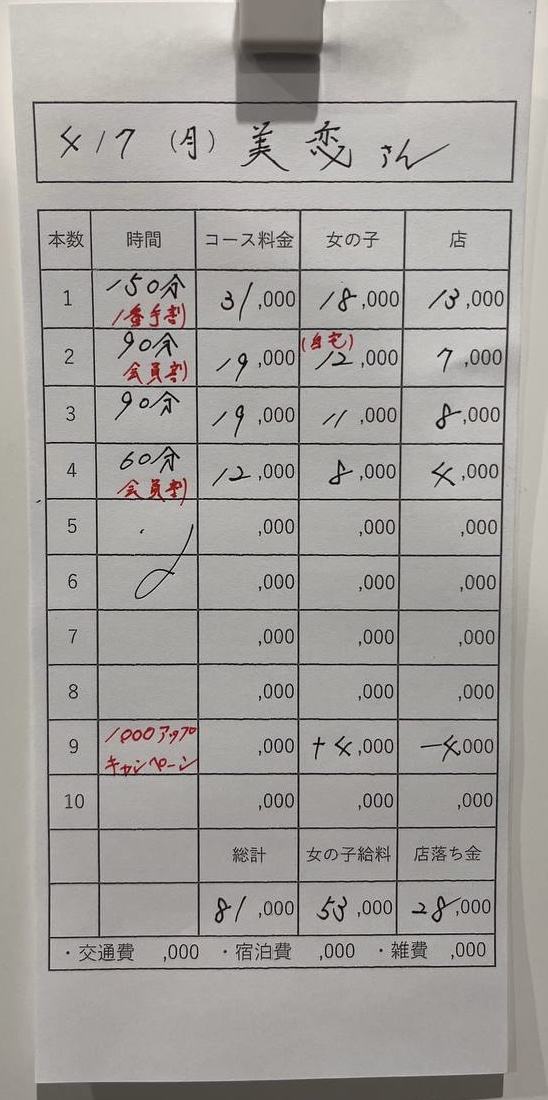 4/17 (月) 美恋さん
本数 時間 コース料金 女の子 店
1 150分 1番手割) 31,000 18,000 13,000
2 90分 会員割) 19,000 (自宅) 12,000 7,000
3 90分 19,000 11,000 8,000
4 60分 会員割) 12,000 8,000 4,000
5 ,000 ,000 ,000
6 ,000 ,000 ,000
7 ,000 ,000 ,000
8 ,000 ,000 ,000
9 1000アップ キャンペーン ,000 +4,000 -4,000
10 ,000 ,000 ,000
総計 女の子給料 店落ち金
81,000 53,000 28,000
・交通費 ,000 ・宿泊費 ,000 ・雑費 ,000